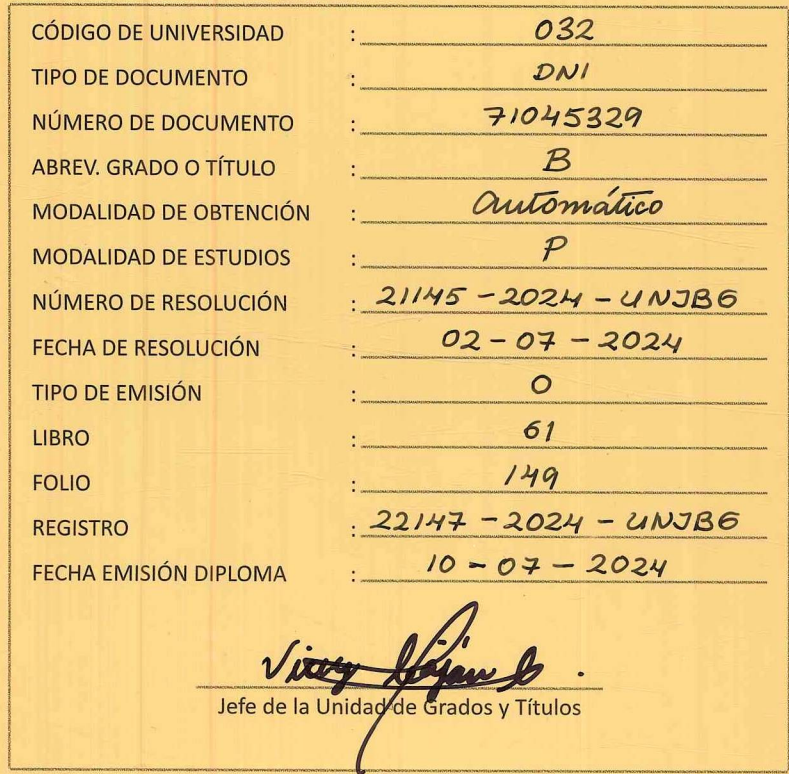 CÓDIGO DE UNIVERSIDAD : 032
TIPO DE DOCUMENTO : DNI
NÚMERO DE DOCUMENTO : 71045329
ABREV. GRADO O TÍTULO : B
MODALIDAD DE OBTENCIÓN : Automático
MODALIDAD DE ESTUDIOS : P
NÚMERO DE RESOLUCIÓN : 21145 - 2024 - UNJBG
FECHA DE RESOLUCIÓN : 02 - 07 - 2024
TIPO DE EMISIÓN : O
LIBRO : 61
FOLIO : 149
REGISTRO : 22147 - 2024 - UNJBG
FECHA EMISIÓN DIPLOMA : 10 - 07 - 2024
Jefe de la Unidad de Grados y Títulos